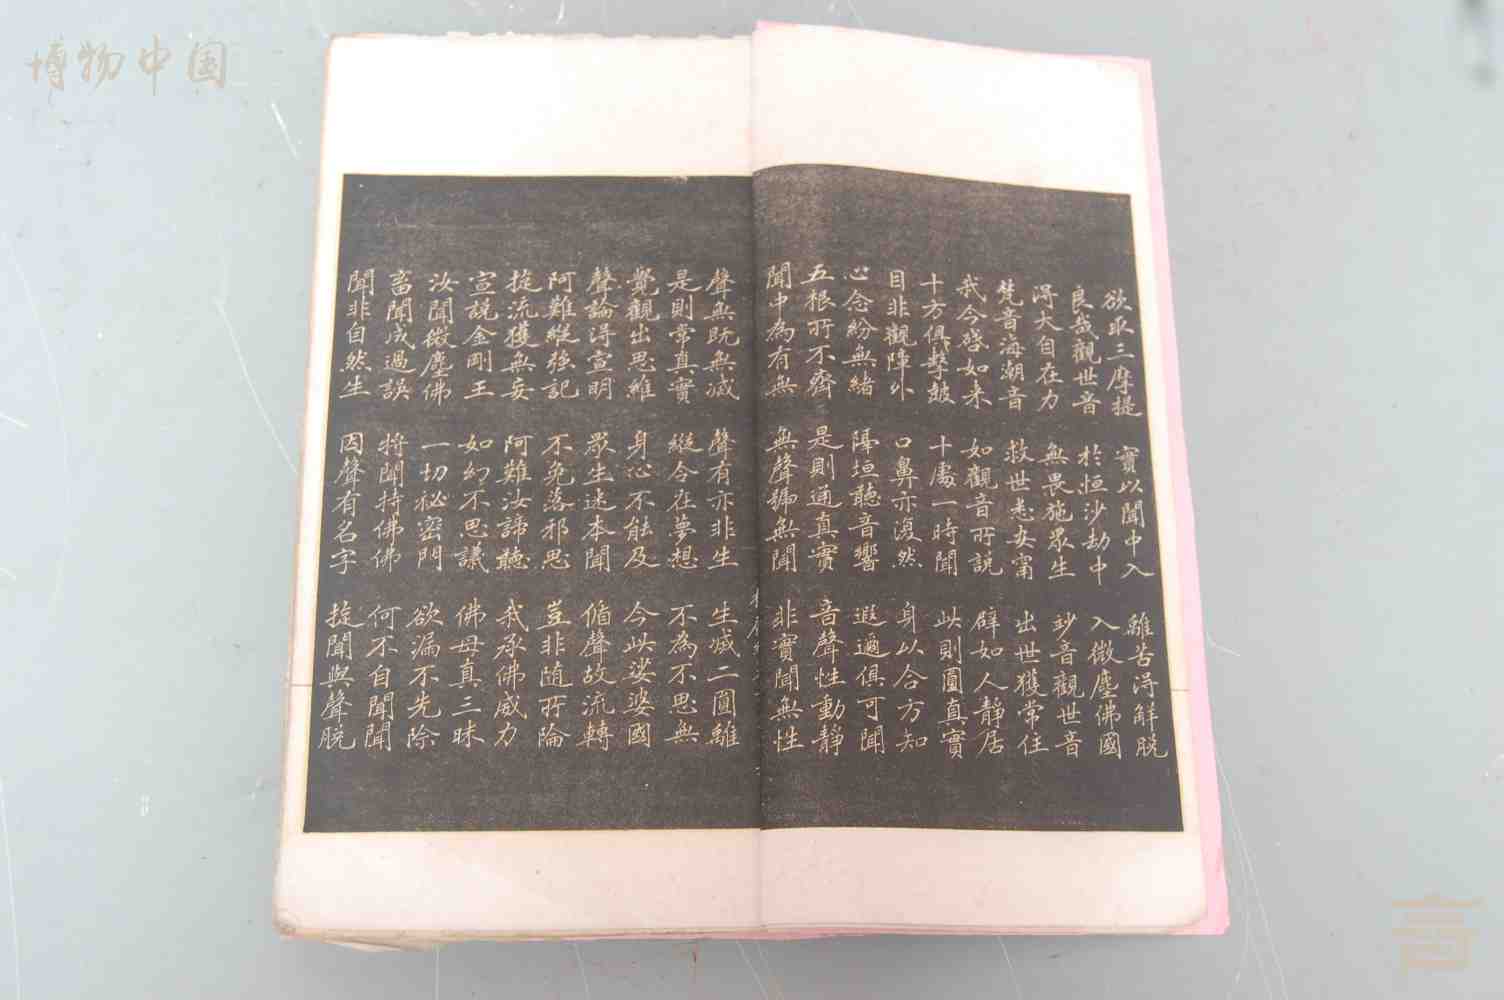 博物中国
欲取三摩提 實以聞中入 離苦得解脫
良哉觀世音 於恒沙劫中 入微塵佛國
得大自在力 無畏施眾生 妙音觀世音
梵音海潮音 救世悉安甯 出世獲常住
我今啓如来 如觀音所說 辟如人靜居
十方俱擊皷 十處一時聞 此則圓真實
目非觀障外 口鼻亦復然 身以合方知
心念紛無緒 隔垣聽音響 遐邇俱可聞
五根所不齊 是則通真實 音聲性動靜
聞中為有無 無聲號無聞 非實聞無性
聲無既無滅 聲有亦非生 生滅二圓離
是則常真實 縱令在夢想 不為不思無
覺觀出思維 身心不能及 今此娑婆國
聲論得宣明 眾生迷本聞 循聲故流轉
阿難縱強記 不免落邪思 豈非隨所淪
旋流獲無妄 阿難汝諦聽 我承佛威力
宣說金剛王 如幻不思議 佛母真三昧
汝聞微塵佛 一切秘密門 欲漏不先除
畜聞成過誤 將聞持佛佛 何不自聞聞
聞非自然生 因聲有名字 旋聞與聲脫